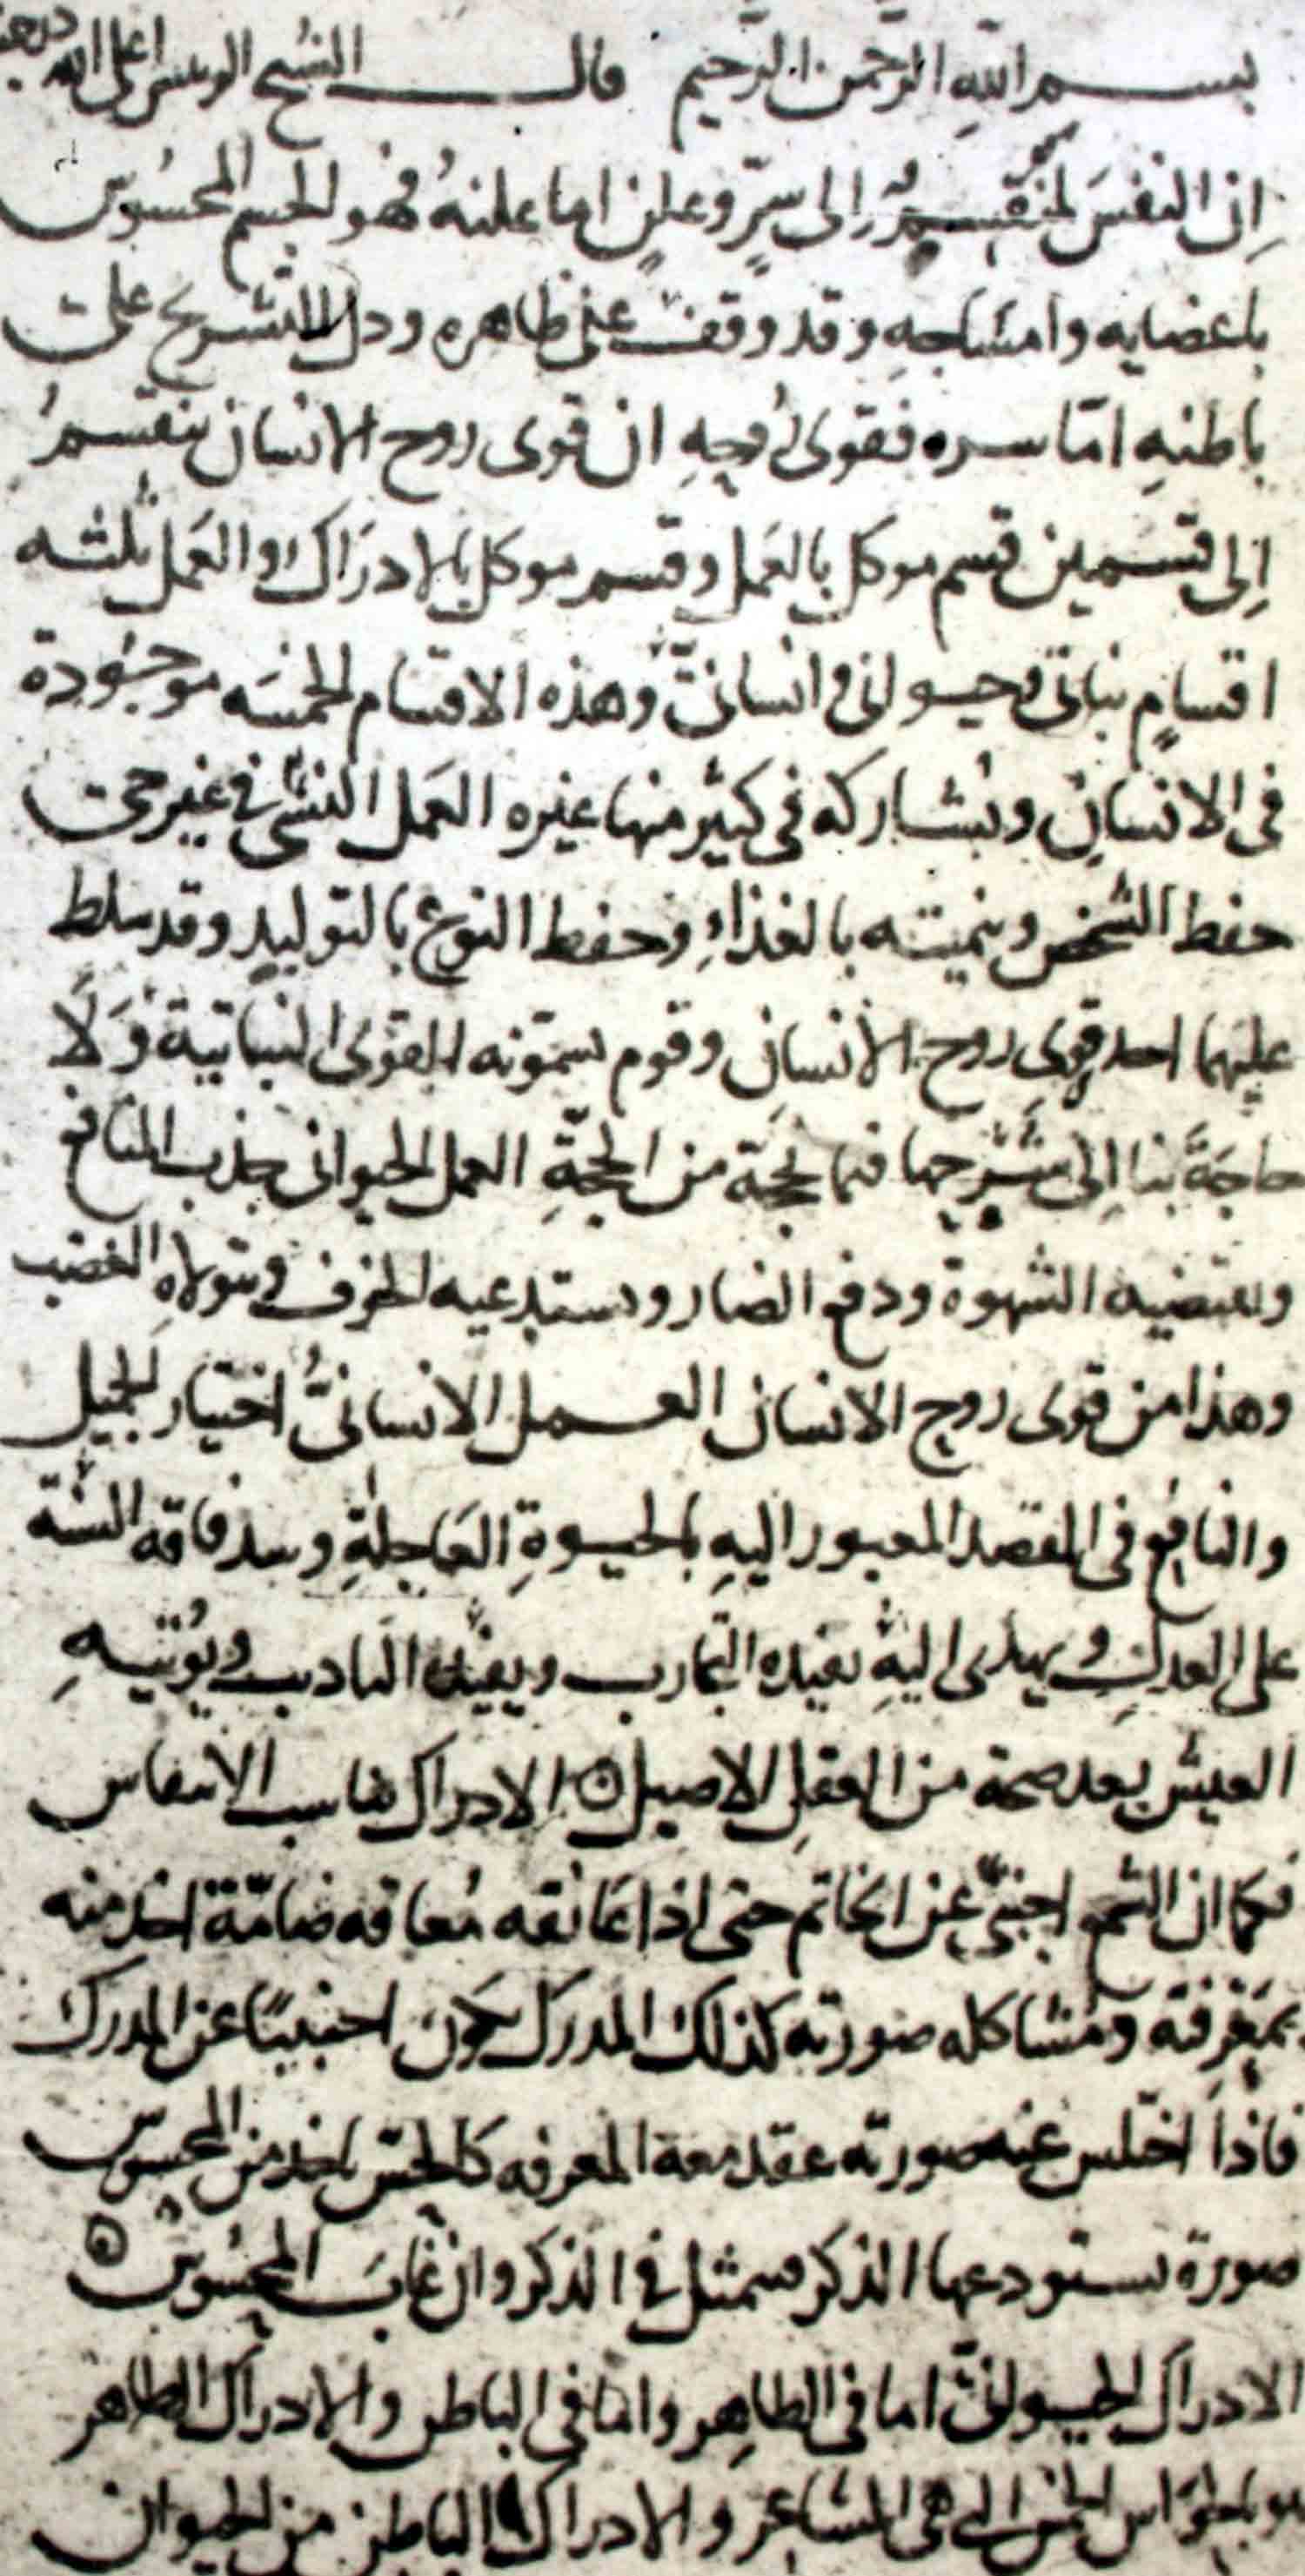 بسم الله الرحمن الرحيم قال الشيخ الرئيس اعلى الله درجته
اِن النفسَ لمنقسمٌ اِلى سرٍّ وعلنٍ اما علنهُ فهو الجسم المحسُوس
باعضايه وامشاجهِ وقد وقفت على ظاهره ودل التشريح على
باطنهِ امّا سره فقوى رُوحِهِ ان قوى روح الانسان ينقسمُ
اِلى قسمين قسم موكل بالعَمل وقسم موكل بالادرَاك والعَمل ثلثه
اقسامٍ نباتى وحيوانى وانسانىّ وهذه الاقسام الخمسَه موجُودة
فى الانسانِ ويشاركه فى كثير منها غيره العَمل النشىّ فى غير حى
حفط الشخص وينميته بالغذاءِ وحفط النوع بالتوليدِ وقد سلط
عليهما احد قوى روح الانسانِ وقوم يسمّونه القوى النباتية وَلَا
حاجَةَ بنا اِلى شَرحها فى الحيوانى جذب المنافع
ويقتضيه الشهوة ودفع الضار ويستدعيه الخوف ويتولاهِ الغضب
وهذا من قوى روح الانسان العمل الانسانىُّ اختيار الجميل
والنافع فى المقصد المعبور اليهِ بالحيوةِ العَاجلةِ وسد فاقه
على العدل ويهدى اليهِ يفيده التجارب ويفيده التاديب ويُوتيهِ
العيش بعد صحة من العقلِ الاصيل ۞ الادراك يناسب الانتقاس
فكما ان الشمع اجنبىّ عن الخاتم حتى اذا عَانقه مُعانقه ضامّة اخذ منه
بمَعْرفة ومشاكله صورته كذلك المدرك يكون اجنبيًا عن المدرك
فاذا اختلس عنه صورته عقد معهَ المعرفه كالحس ياخذ من المحسُوس
صورة يستودعها الذكر فيتمثل فى الذكر وان غابَ المحسُوس ۞
الادراك الحيوانىّ اما فى الطاهِر واما فى الباطن والادراك الطاهر
هو بالحوَاس الخمس التى هى المشاعر والادراك الباطن من الحيوان